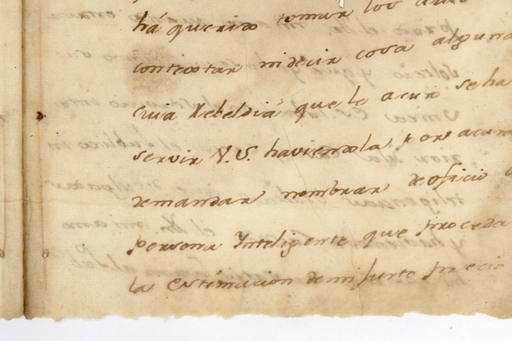 há querido tomar los autos
contextar ni decir cosa alguna
cuia Rebeldia que le acusé se ha
servir V.S. haviendola por acus
demandar nombrar de oficio
persona Inteligente que proceda
la estimacion de mi Justo precio